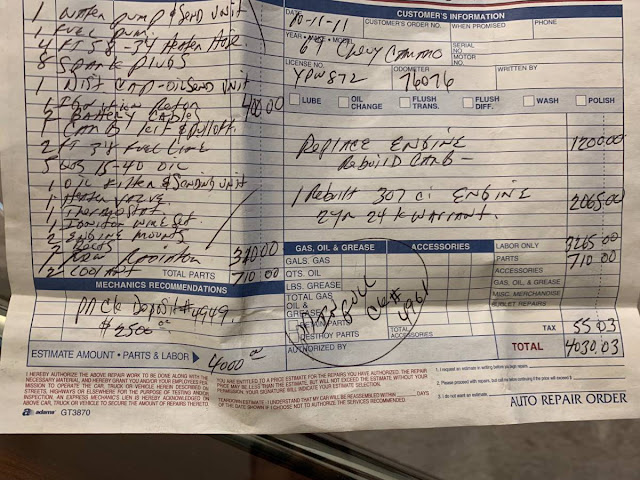 1 Water pump & Send unit
1 Fuel pump.
4 FT 5 8 - 34 Heater Hose
8 Spark plugs
1 Dist Cap - oil Send unit
1 Ignition Rotor 400.00
2 BATTERY Cables
1 CARB kit &
2 FT 38 Fuel Line
5 15-40 oil
1 Oil Filter & Sending unit
1 Heater valve
1 Thermostat.
1 Ignition wire set
2 Engine mounts
2 Belts
1 Radiator 310 00
2 Coolant TOTAL PARTS 710 00
MECHANICS RECOMMENDATIONS
Deposit # 4949
$ 2500 00
ESTIMATE AMOUNT • PARTS & LABOR 4000 00
I HEREBY AUTHORIZE THE ABOVE REPAIR WORK TO BE DONE ALONG WITH THE
NECESSARY MATERIAL, AND HEREBY GRANT YOU AND/OR YOUR EMPLOYEES PER-
MISSION TO OPERATE THE CAR, TRUCK OR VEHICLE HEREIN DESCRIBED ON
STREETS, HIGHWAYS OR ELSEWHERE FOR THE PURPOSE OF TESTING AND/OR
INSPECTION. AN EXPRESS MECHANIC'S LIEN IS HEREBY ACKNOWLEDGED ON
ABOVE CAR, TRUCK OR VEHICLE TO SECURE THE AMOUNT OF REPAIRS THERETO.
adams GT3870
CUSTOMER'S INFORMATION
DATE 10-11-11 CUSTOMER'S ORDER NO. WHEN PROMISED PHONE
YEAR • MAKE • MODEL 69 Chevy Camaro SERIAL NO.
MOTOR NO.
LICENSE NO. YPW872 ODOMETER 76076 WRITTEN BY
LUBE OIL CHANGE FLUSH TRANS. FLUSH DIFF. WASH POLISH
REPLACE ENGINE 1200.00
REBUILD CARB -
1 Rebuilt 307 ci ENGINE 2065.00
24 k
GAS, OIL & GREASE ACCESSORIES LABOR ONLY 3265 00
GALS. GAS PARTS 710 00
QTS. OIL ACCESSORIES
LBS. GREASE GAS, OIL & GREASE
TOTAL GAS OIL & GREASE MISC. MERCHANDISE
SUBLET REPAIRS
PARTS
DESTROY PARTS TOTAL ACCESSORIES TAX 55.03
Full
ck# 4961
AUTHORIZED BY TOTAL 4030.03
YOU ARE ENTITLED TO A PRICE ESTIMATE FOR THE REPAIRS YOU HAVE AUTHORIZED. THE REPAIR
PRICE MAY BE LESS THAN THE ESTIMATE, BUT WILL NOT EXCEED THE ESTIMATE WITHOUT YOUR
PERMISSION. YOUR SIGNATURE WILL INDICATE YOUR ESTIMATE SELECTION.
TEARDOWN ESTIMATE - I UNDERSTAND THAT MY CAR WILL BE REASSEMBLED WITHIN DAYS
OF THE DATE SHOWN IF I CHOOSE NOT TO AUTHORIZE THE SERVICES RECOMMENDED.
1. I request an estimate in writing before you begin repairs.
2. Please proceed with repairs, but call me before continuing if the price will exceed $
3. I do not want an estimate.
AUTO REPAIR ORDER